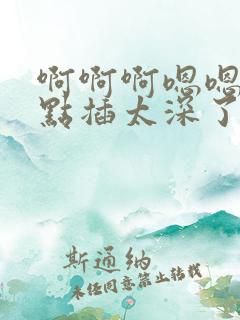 啊啊啊嗯嗯
點插太深了
斯通纳
未经同意禁止转载